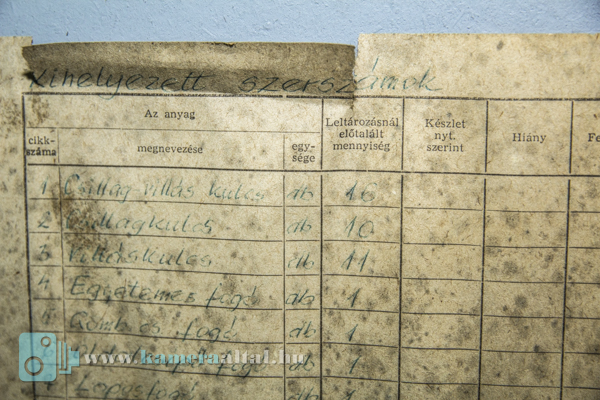 kihelyezett szerszámok
Az anyag
Leltározásnál
előtalált
mennyiség
Készlet
nyt.
szerint
Hiány
Fe
cikk-
száma
megnevezése
egy-
sége
1 Csillag-villás kulcs db 16
2 Csillagkulcs db 10
3 Villáskulcs db 11
4 Egyetemes fogó db 1
5 Gömb és fogó db 1
6 fogó db 1
7 Laposfogó db 1
www.kameraaltal.hu